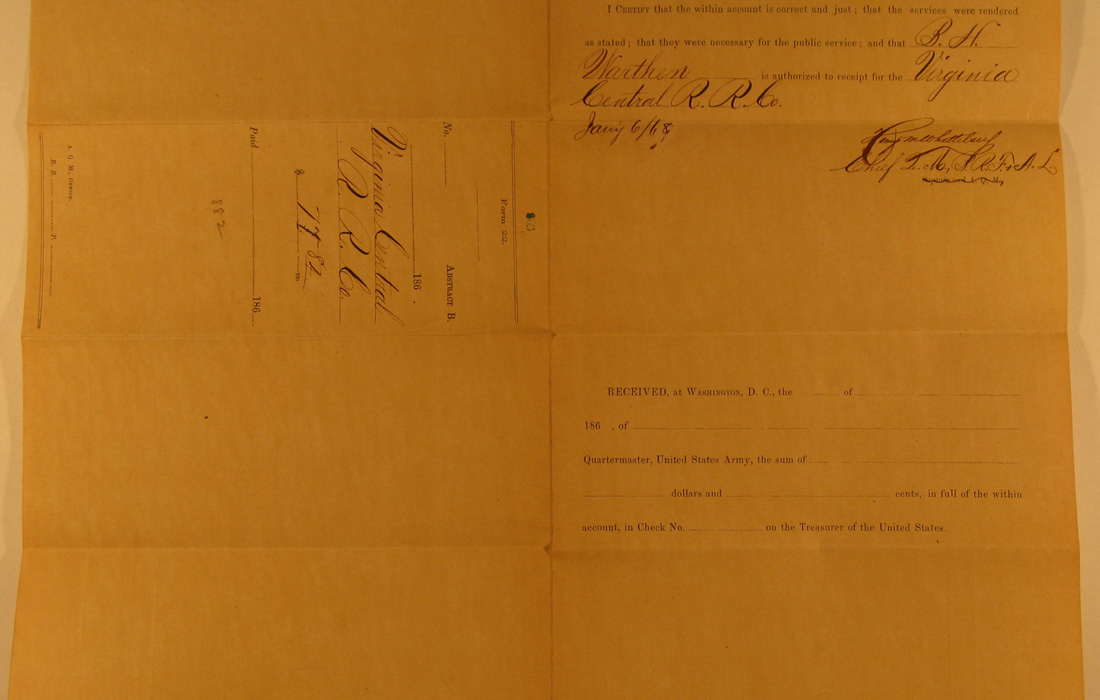 I CERTIFY that the within account is correct and just; that the services were rendered
as stated; that they were necessary for the public service; and that B. H.
Warthen is authorized to receipt for the Virginia
Central R. R. Co.
Jany 6/68
Chief
RECEIVED, at WASHINGTON, D. C., the of
186 , of
Quartermaster, United States Army, the sum of
dollars and cents, in full of the within
account, in Check No. on the Treasurer of the United States.
Form 22.
No. ABSTRACT B.
186 .
Virginia Central
R. R. Co.
$
Paid 186
882
A. Q. M., OFFICE.